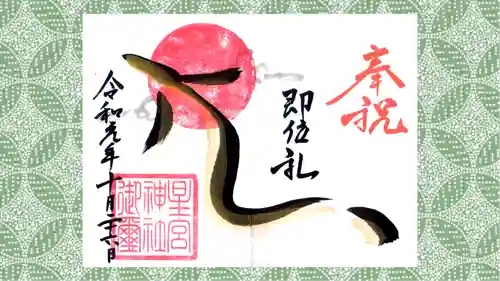 奉祝
即位礼
令和元年十月二十六日
星宮
神社
御璽